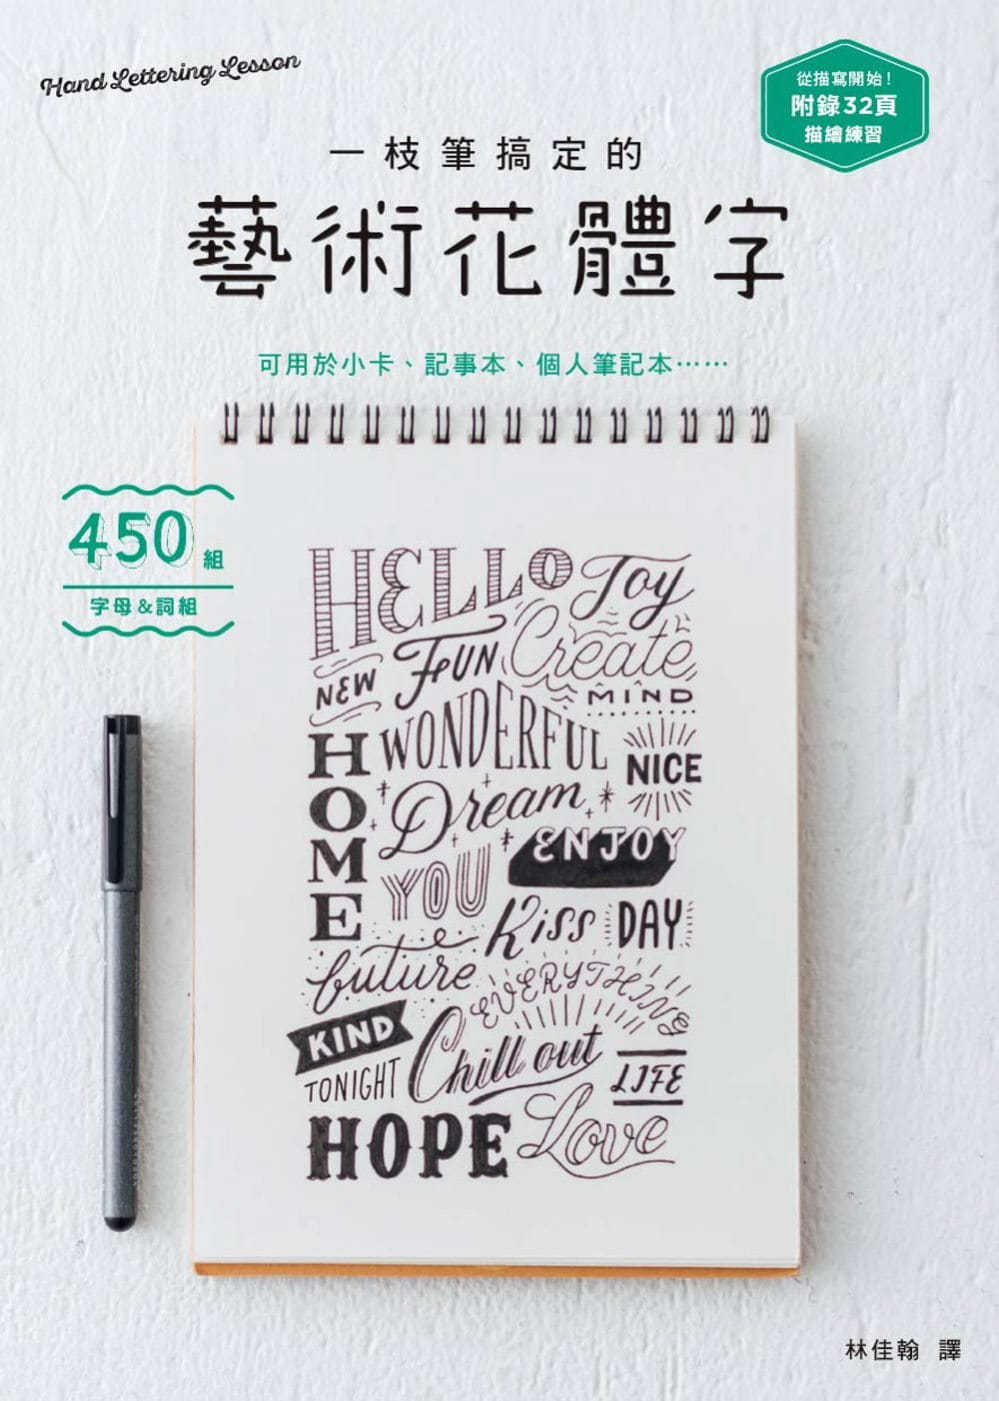 Hand Lettering Lesson
從描寫開始！
附錄32頁
描繪練習
一枝筆搞定的
藝術花體字
可用於小卡、記事本、個人筆記本……
450組
字母&詞組
HELLO Joy
NEW FUN Create
MIND
HOME WONDERFUL NICE
Dream
ENJOY
YOU Kiss DAY
future EVERYTHING
KIND Chill out
TONIGHT LIFE
HOPE Love
林佳翰 譯